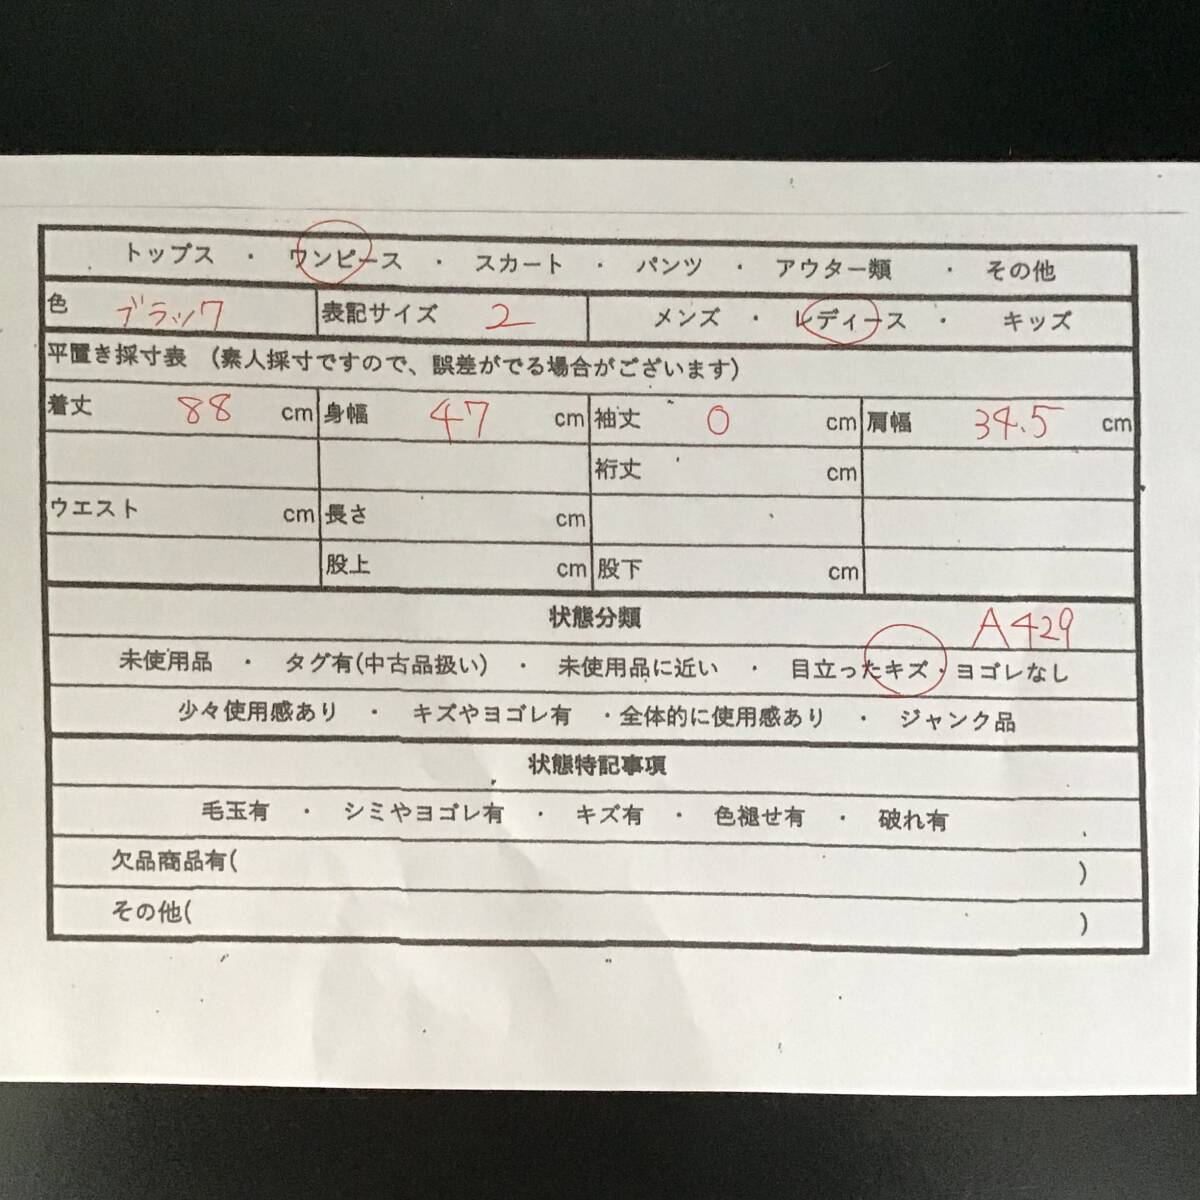 トップス ・ ワンピース ・ スカート ・ パンツ ・ アウター類 ・ その他
色 ブラック 表記サイズ 2 メンズ ・ レディース ・ キッズ
平置き採寸表 (素人採寸ですので、誤差がでる場合がございます)
着丈 88 cm 身幅 47 cm 袖丈 0 cm 肩幅 34.5 cm
裄丈 cm
ウエスト cm 長さ cm
股上 cm 股下 cm
状態分類 A429
未使用品 ・ タグ有(中古品扱い) ・ 未使用品に近い ・ 目立ったキズ・ヨゴレなし
少々使用感あり ・ キズやヨゴレ有 ・全体的に使用感あり ・ ジャンク品
状態特記事項
毛玉有 ・ シミやヨゴレ有 ・ キズ有 ・ 色褪せ有 ・ 破れ有
欠品商品有( )
その他( )